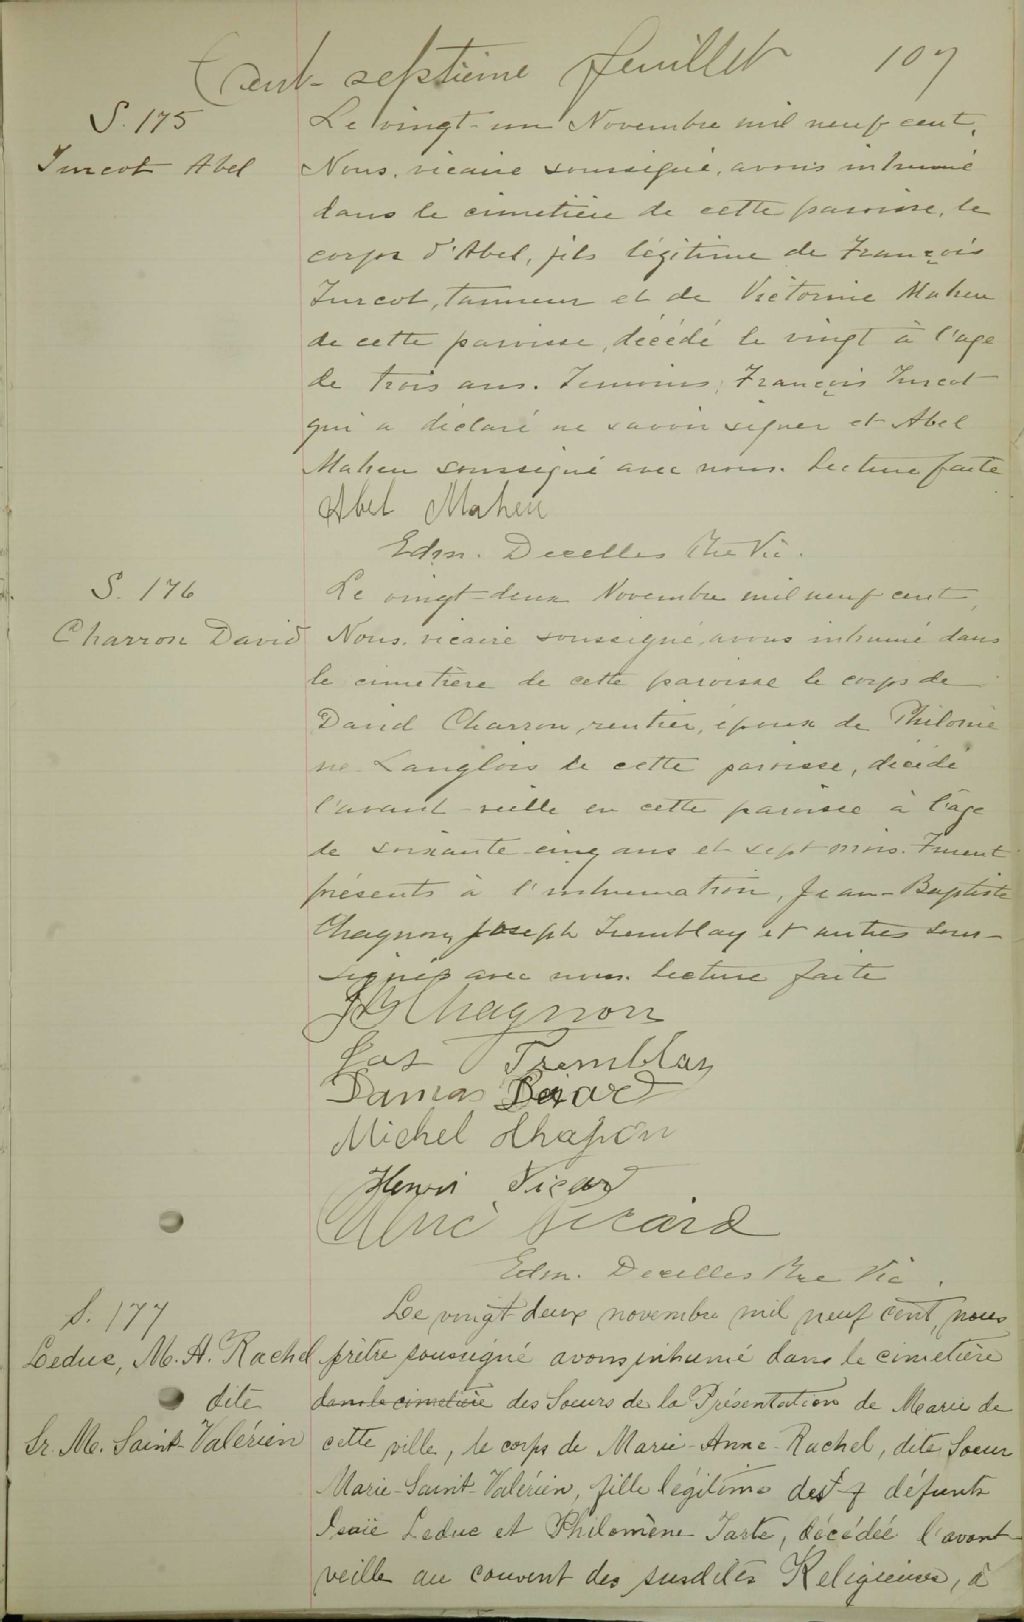 Cent-septième feuillet 107
S. 175
Turcot Abel
Le vingt-un Novembre mil neuf cent,
Nous, vicaire soussigné, avons inhumé
dans le cimetière de cette paroisse, le
corps d'Abel, fils légitime de François
Turcot, tanneur et de Victorine Maheu
de cette paroisse, décédé le vingt à l'age
de trois ans. Temoins, François Turcot
qui a déclaré ne savoir signer et Abel
Maheu soussigné avec nous. Lecture faite
Abel Maheu
Edm. Decelles Ptre Vic.
S. 176
Charron David
Le vingt-deux Novembre mil neuf cent,
Nous, vicaire soussigné, avons inhumé dans
le cimetière de cette paroisse le corps de
David Charron, rentier, époux de Philomè
ne Langlois de cette paroisse, décédé
l'avant-veille en cette paroisse à l'âge
de soixante-cinq ans et sept mois. Furent
présents à l'inhumation, Jean-Baptiste
Chagnon, Joseph Tremblay et autres sous-
signés avec nous. Lecture faite
JB Chagnon
Jos Tremblay
Damas
Michel
Henri
Sicard
Edm. Decelles Ptre Vic.
S. 177
Leduc, M. A. Rachel
dite
Sr. M. Saint-Valérien
Le vingt deux novembre mil neuf cent, nous
prêtre soussigné avons inhumé dans le cimetière
dans le cimetière des Soeurs de la Présentation de Marie de
cette ville, le corps de Marie-Anne-Rachel, dite Soeur
Marie-Saint-Valérien, fille légitime des défunts
Isaïe Leduc et Philomène Tarte, décédée l'avant
veille au couvent des susdites Religieuses, à